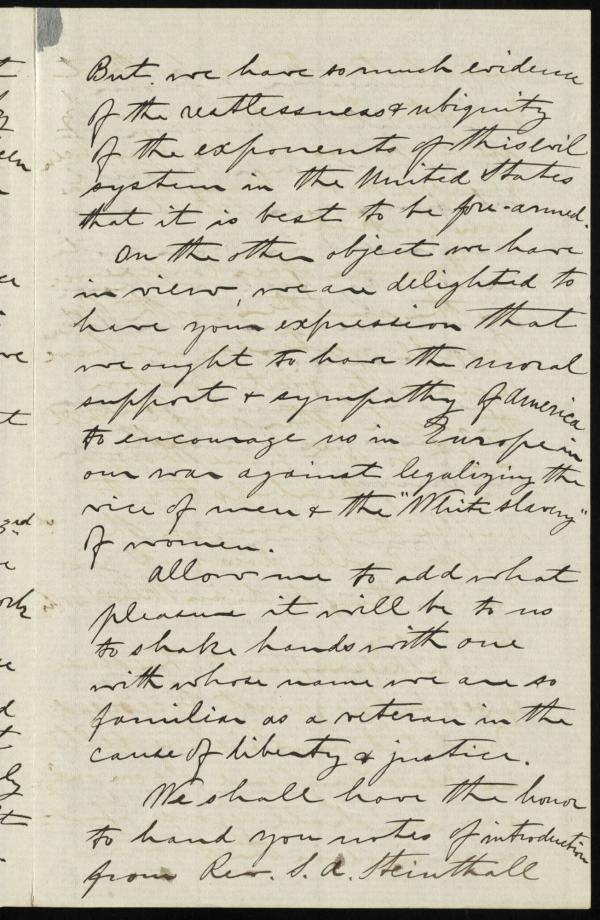 But. we have so much evidence
of the restlessness & ubiquity
of the exponents of this evil
system in the United States
that it is best to be fore-armed.
On the other object we have
in view, we are delighted to
have your expression that
we ought to have the moral
support & sympathy of America
to encourage us in Europe in
our war against legalizing the
vice of men & the "White slavery"
of women.
Allow me to add what
pleasure it will be to us
to shake hands with one
with whose name we are so
familiar as a veteran in the
cause of liberty & justice.
We shall have the honor
to hand you notes of introduction
from Rev. S. A. Steinthall